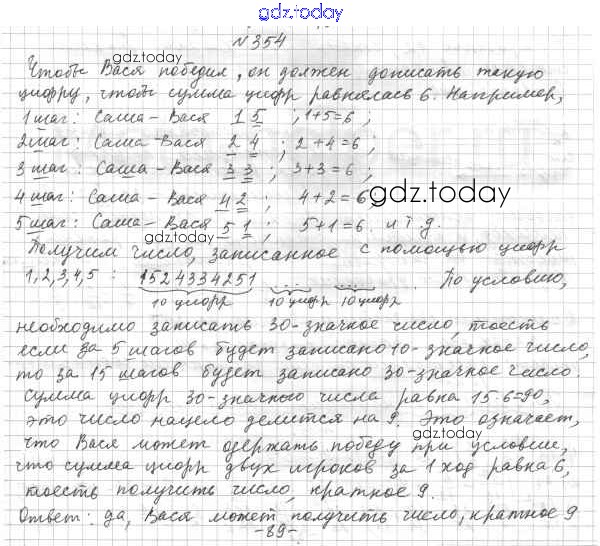 gdz.today
№354
gdz.today
Чтобы Вася победил, он должен дописать такую
цифру, чтобы сумма цифр равнялась 6. Например,
1 шаг: Саша - Вася 1 5 ; 1+5=6 ;
2 шаг: Саша - Вася 2 4 ; 2+4=6 ;
3 шаг: Саша - Вася 3 3 ; 3+3=6 ;
4 шаг: Саша - Вася 4 2 ; 4+2=6 ;
gdz.today
5 шаг: Саша - Вася 5 1 ; 5+1=6. и т.д.
gdz.today
Получим число, записанное с помощью цифр
1,2,3,4,5 : 1524334251 ... ... . По условию,
10 цифр 10 цифр 10 цифр
необходимо записать 30-значное число, тоесть
если за 5 шагов будет записано 10-значное число,
то за 15 шагов будет записано 30-значное число.
Сумма цифр 30-значного числа равна 15·6=90,
это число нацело делится на 9. Это означает,
gdz.today
что Вася может одержать победу при условии,
что сумма цифр двух игроков за 1 ход равна 6,
тоесть получить число, кратное 9.
Ответ: да, Вася может получить число, кратное 9
-89-
gdz.today